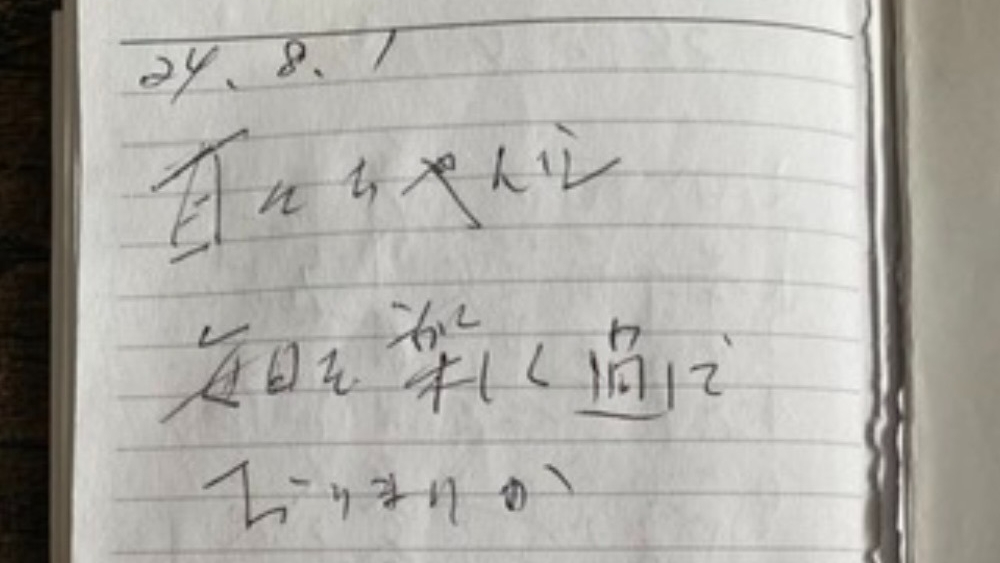 24. 8. 1
ちやんは
毎日を楽しく過して
おりますか